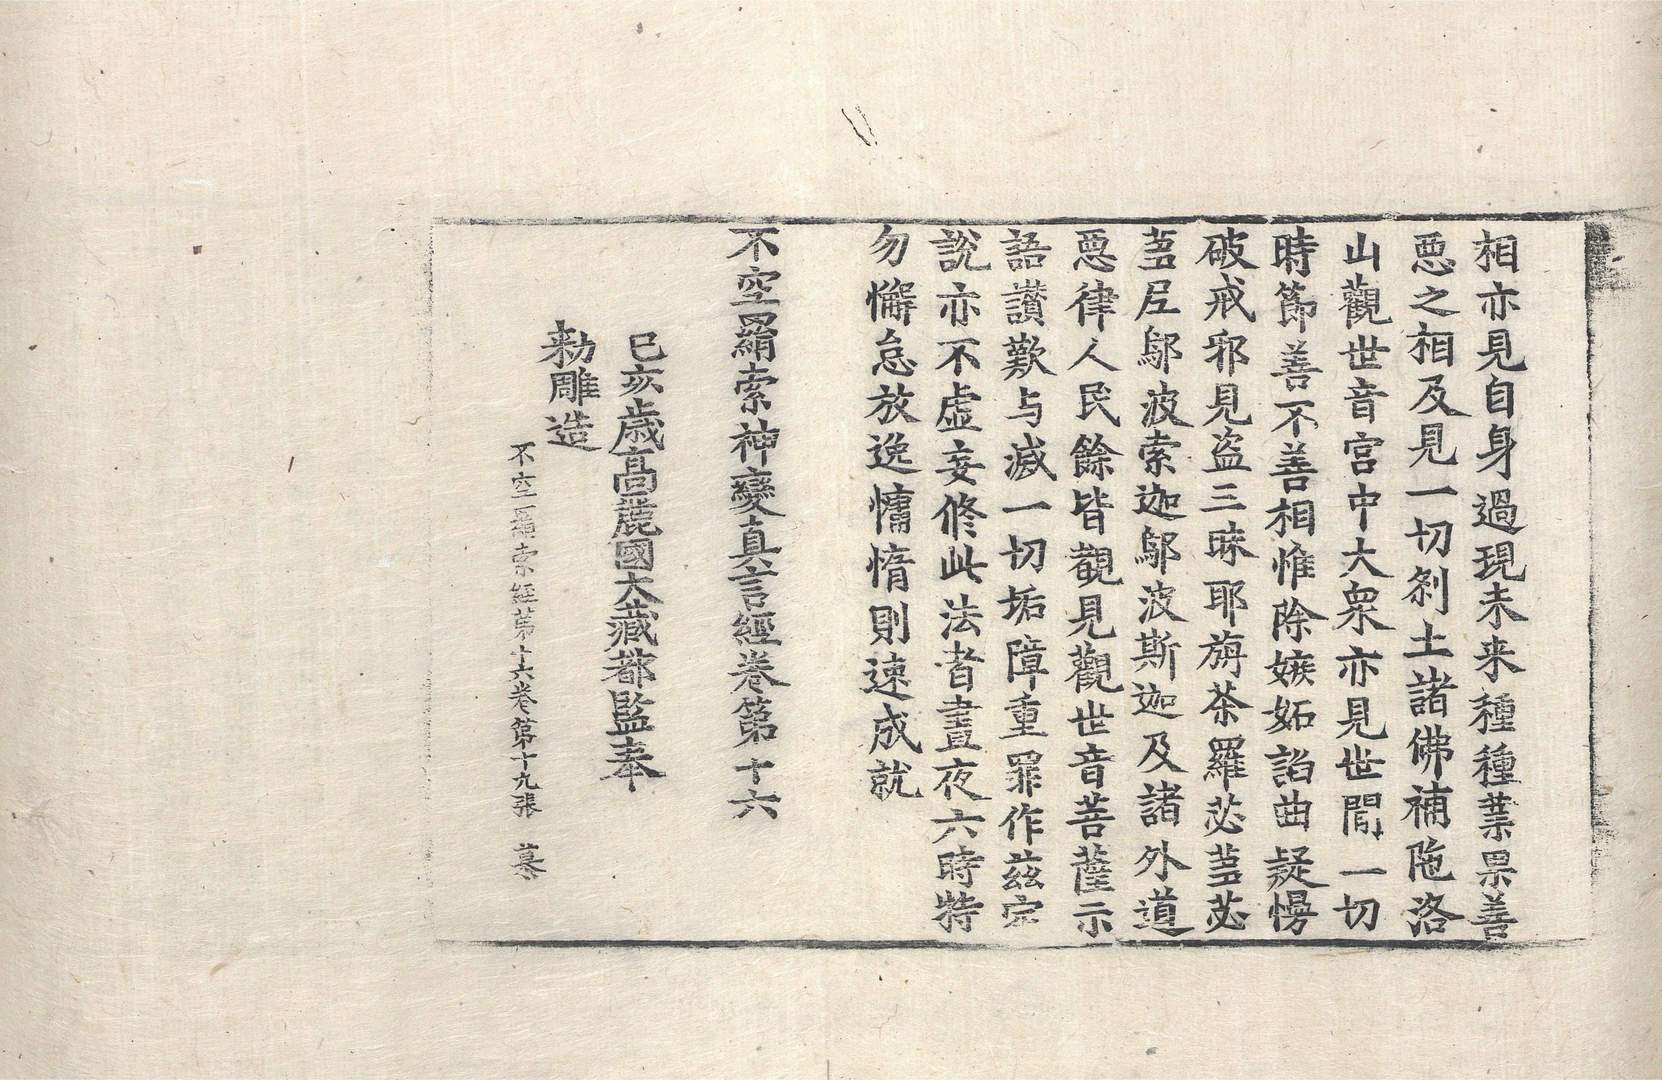 相亦見自身過現未来種種業果善
惡之相及見一切剎土諸佛補陁洛
山觀世音宮中大衆亦見世間一切
時節善不善相惟除嫉妬諂曲疑慢
破戒邪見盜三昧耶旃茶羅苾蒭苾
蒭尼鄔波索迦鄔波斯迦及諸外道
惡律人民餘皆觀見觀世音菩薩示
語讃歎与滅一切垢障重罪作茲定
說亦不虛妄修此法者晝夜六時特
勿懈怠放逸慵惰則速成就
不空羂索神變真言經卷第十六
己亥歲高麗國大藏都監奉
勑雕造
不空羂索經第十六卷第十九張